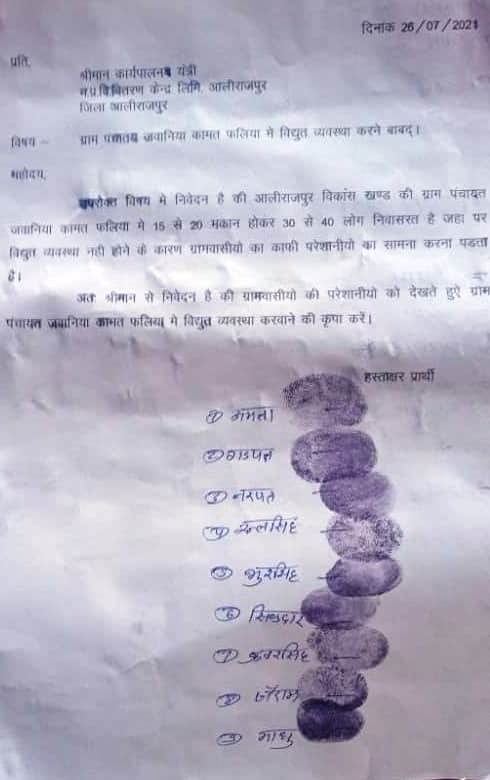 दिनांक 26/07/2021
प्रति,
श्रीमान कार्यपालन यंत्री
म.प्र.वि.वितरण केन्द्र लिमि. आलीराजपुर
जिला आलीराजपुर
विषय – ग्राम पंचातय जवानिया कामत फलिया मे विद्युत व्यवस्था करने बाबद्।
महोदय,
उपरोक्त विषय मे निवेदन है की आलीराजपुर विकास खण्ड की ग्राम पंचायत
जवानिया कामत फलिया मे 15 से 20 मकान होकर 30 से 40 लोग निवासरत है जहा पर
विद्युत व्यवस्था नही होने के कारण ग्रामवासीयो का काफी परेशानीयो का सामना करना पडता
है।
अतः श्रीमान से निवेदन है की ग्रामवासीयो की परेशानीयो को देखते हुऐ ग्राम
पंचायत जवानिया कामत फलिया मे विद्युत व्यवस्था करवाने की कृपा करें।
हस्ताक्षर प्रार्थी
① ममता
②
③ नरपत
④
⑤ भुरसिंह
⑥
⑦
⑧ जैराम
⑨ माधु